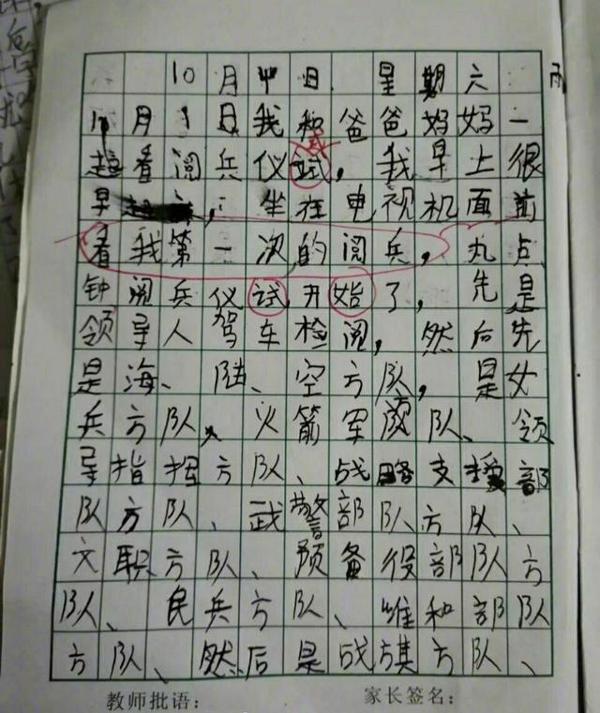 10月 日 星期六 雨
10月1日我和爸爸妈妈一
起看阅兵仪试，我早上很
式
早起 ，坐在电视机面前
看我第一次的阅兵，九点
钟阅兵仪试开始了，先是
领导人驾车检阅，然后先
是海、陆、空方队，是女
兵方队、火箭军方队、领
导指挥方队、战略支援部
队方队、武警部队方队、
文职方队、预备役部队方
队、民兵方队、维和部队
方队、然后是战旗方队、
教师批语： 家长签名：